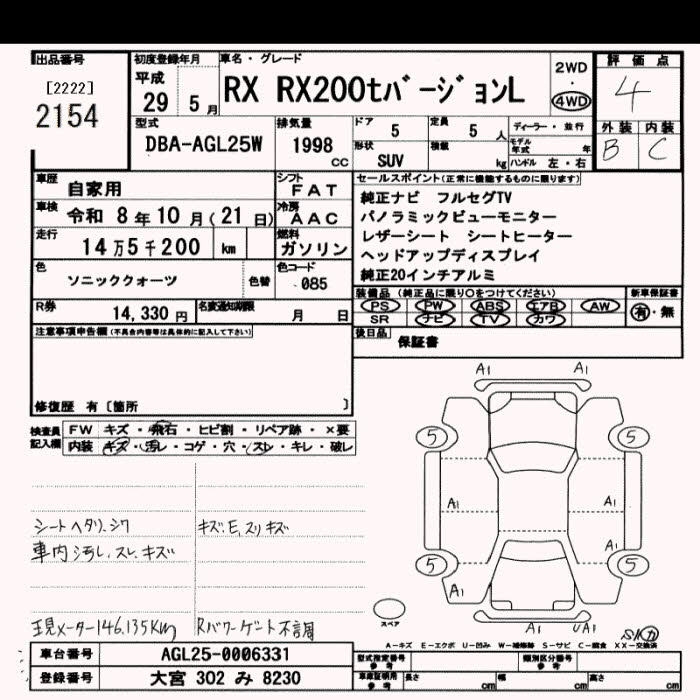 出品番号
[2222]
2154
初度登録年月
平成
29 5月
車名・グレード
RX RX200tバージョンL
2WD
・
4WD
評価点
4
外装 内装
B C
型式
DBA-AGL25W
排気量
1998
cc
ドア
5
定員
5 人
形状
SUV
積載
kg
ディーラー・並行
モデル年式 年
ハンドル 左・右
車歴
自家用
シフト
FAT
車検
令和 8年10月(21日)
冷房
AAC
走行
14万5千200 km
燃料
ガソリン
色
ソニッククォーツ
色替
色コード
085
R券
14,330円
名変通知期限
月 日
セールスポイント(正常に機能するものに限ります)
純正ナビ フルセグTV
パノラミックビューモニター
レザーシート シートヒーター
ヘッドアップディスプレイ
純正20インチアルミ
装備品(純正品に限り○をつけてください)
PS PW ABS エアB AW
SR ナビ TV カワ
新車保証書
有・無
後日品
保証書
注意事項申告欄(不具合内容等は具体的に記入して下さい)
修復歴 有〔箇所 〕
検査員記入欄
FW キズ・飛石・ヒビ割・リペア跡・×要
内装 キズ・汚レ・コゲ・穴・スレ・キレ・破レ
シートヘタリ、シワ
車内汚レ、スレ、キズ
キズ、E、スリキズ
現メーター146,135Km
Rパワーゲート不調
A1 A1
5 5
A1 A1
A1
5 5
A1
A1 UA1
スペア
A-キズ E-エクボ U-凹み W-補修跡 S-サビ C-腐食 XX-交換済
車台番号
AGL25-0006331
登録番号
大宮 302 み 8230
型式指定番号
参考
類別区分番号
参考
車庫証明用
参考
長さ cm
幅 cm
高さ cm